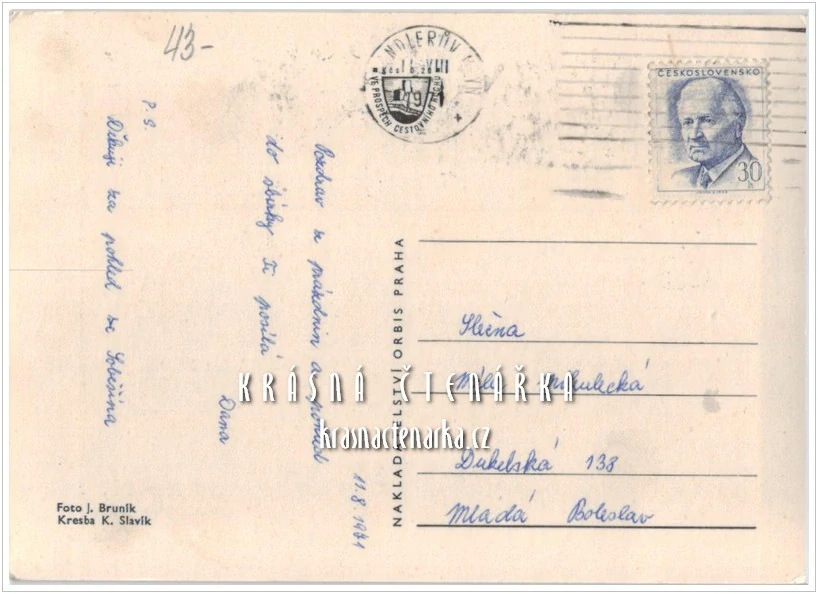 43-
NDLERŮV MLÝN
11.VIII
1971
VE PROSPĚCH CESTOVNÍHO RUCHU
ČESKOSLOVENSKO
30
h
P.S.
Děkuji za pohled ze Soběšína
Pozdrav z prázdnin a pohled
do sbírky Ti posílá
Dana
11.8.1971
NAKLADATELSTVÍ ORBIS PRAHA
Slečna
Mikulecká
Dukelská 138
Mladá Boleslav
KRÁSNÁ ČTENÁŘKA
krasnactenarka.cz
Foto J. Bruník
Kresba K. Slavík